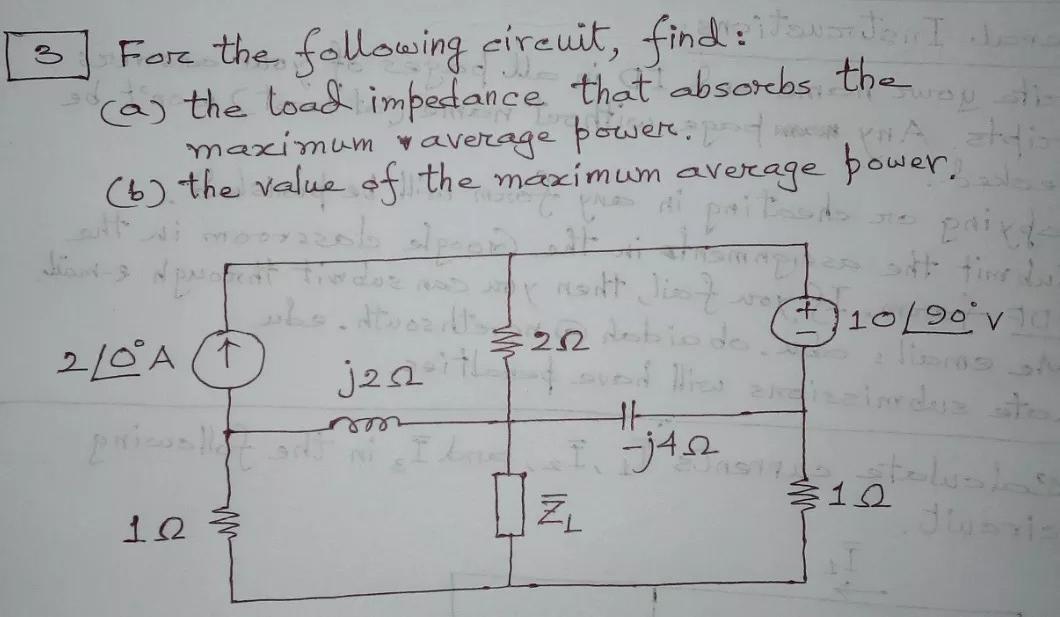 3 For the following circuit, find:
(a) the load impedance that absorbs the
maximum average power.
(b) the value of the maximum average power.
2∠0° A
j2Ω
2Ω
+
−
10∠90° V
-j4Ω
1Ω
Z̅L
1Ω